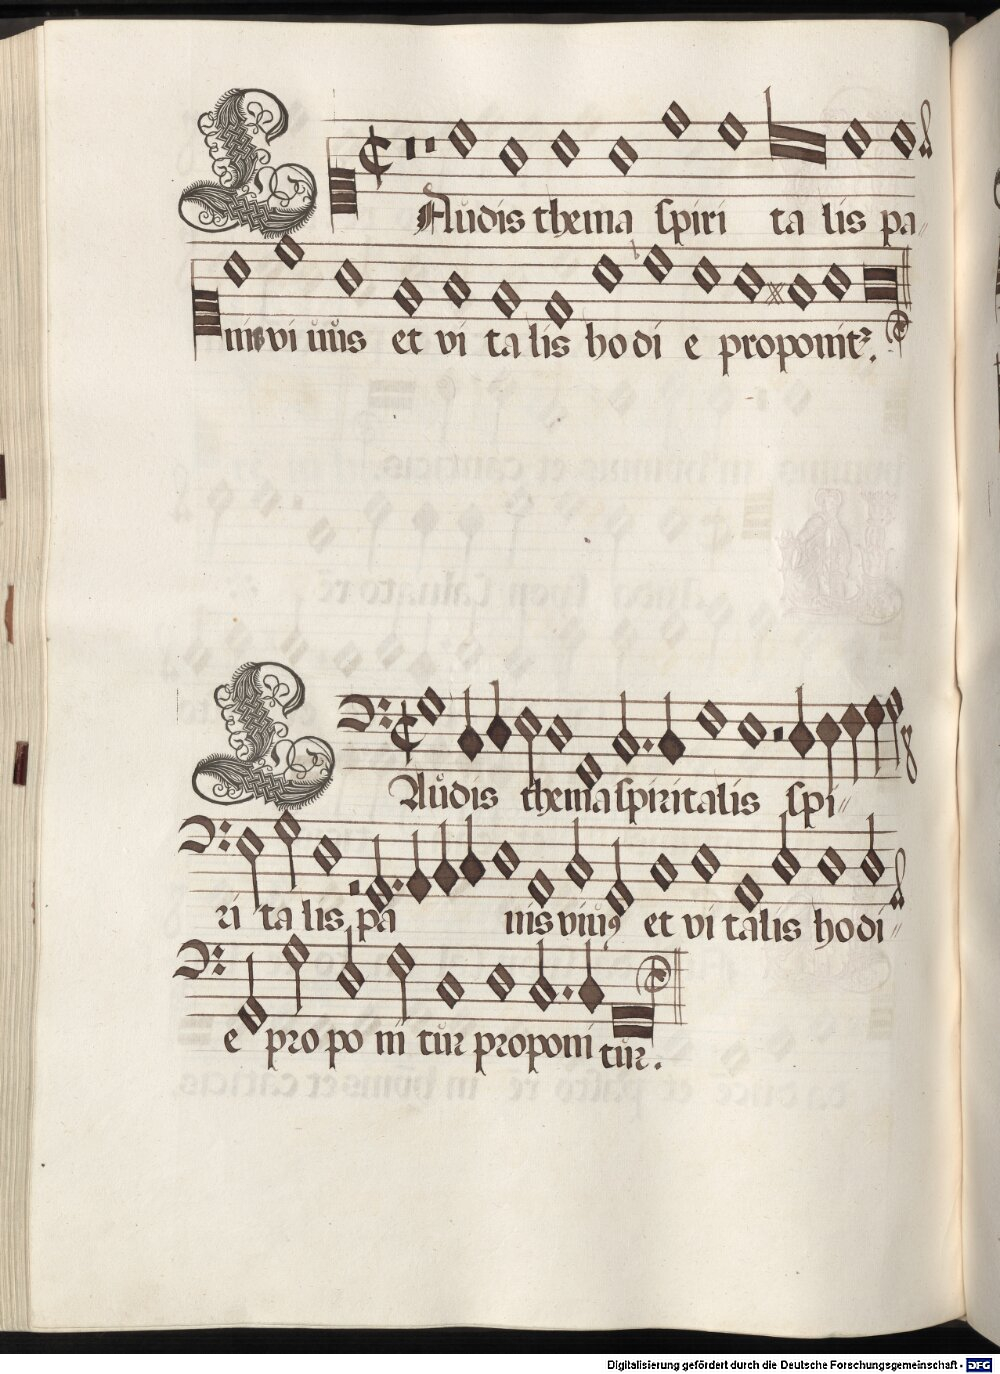 LAudis thema spiri ta lis pa
nis vi uus et vi ta lis ho di e proponit.
LAudis thema spiritalis spi
ri ta lis pa nis viuꝰ et vi talis hodi
e pro po ni tur proponi tur.
Digitalisierung gefördert durch die Deutsche Forschungsgemeinschaft - DFG